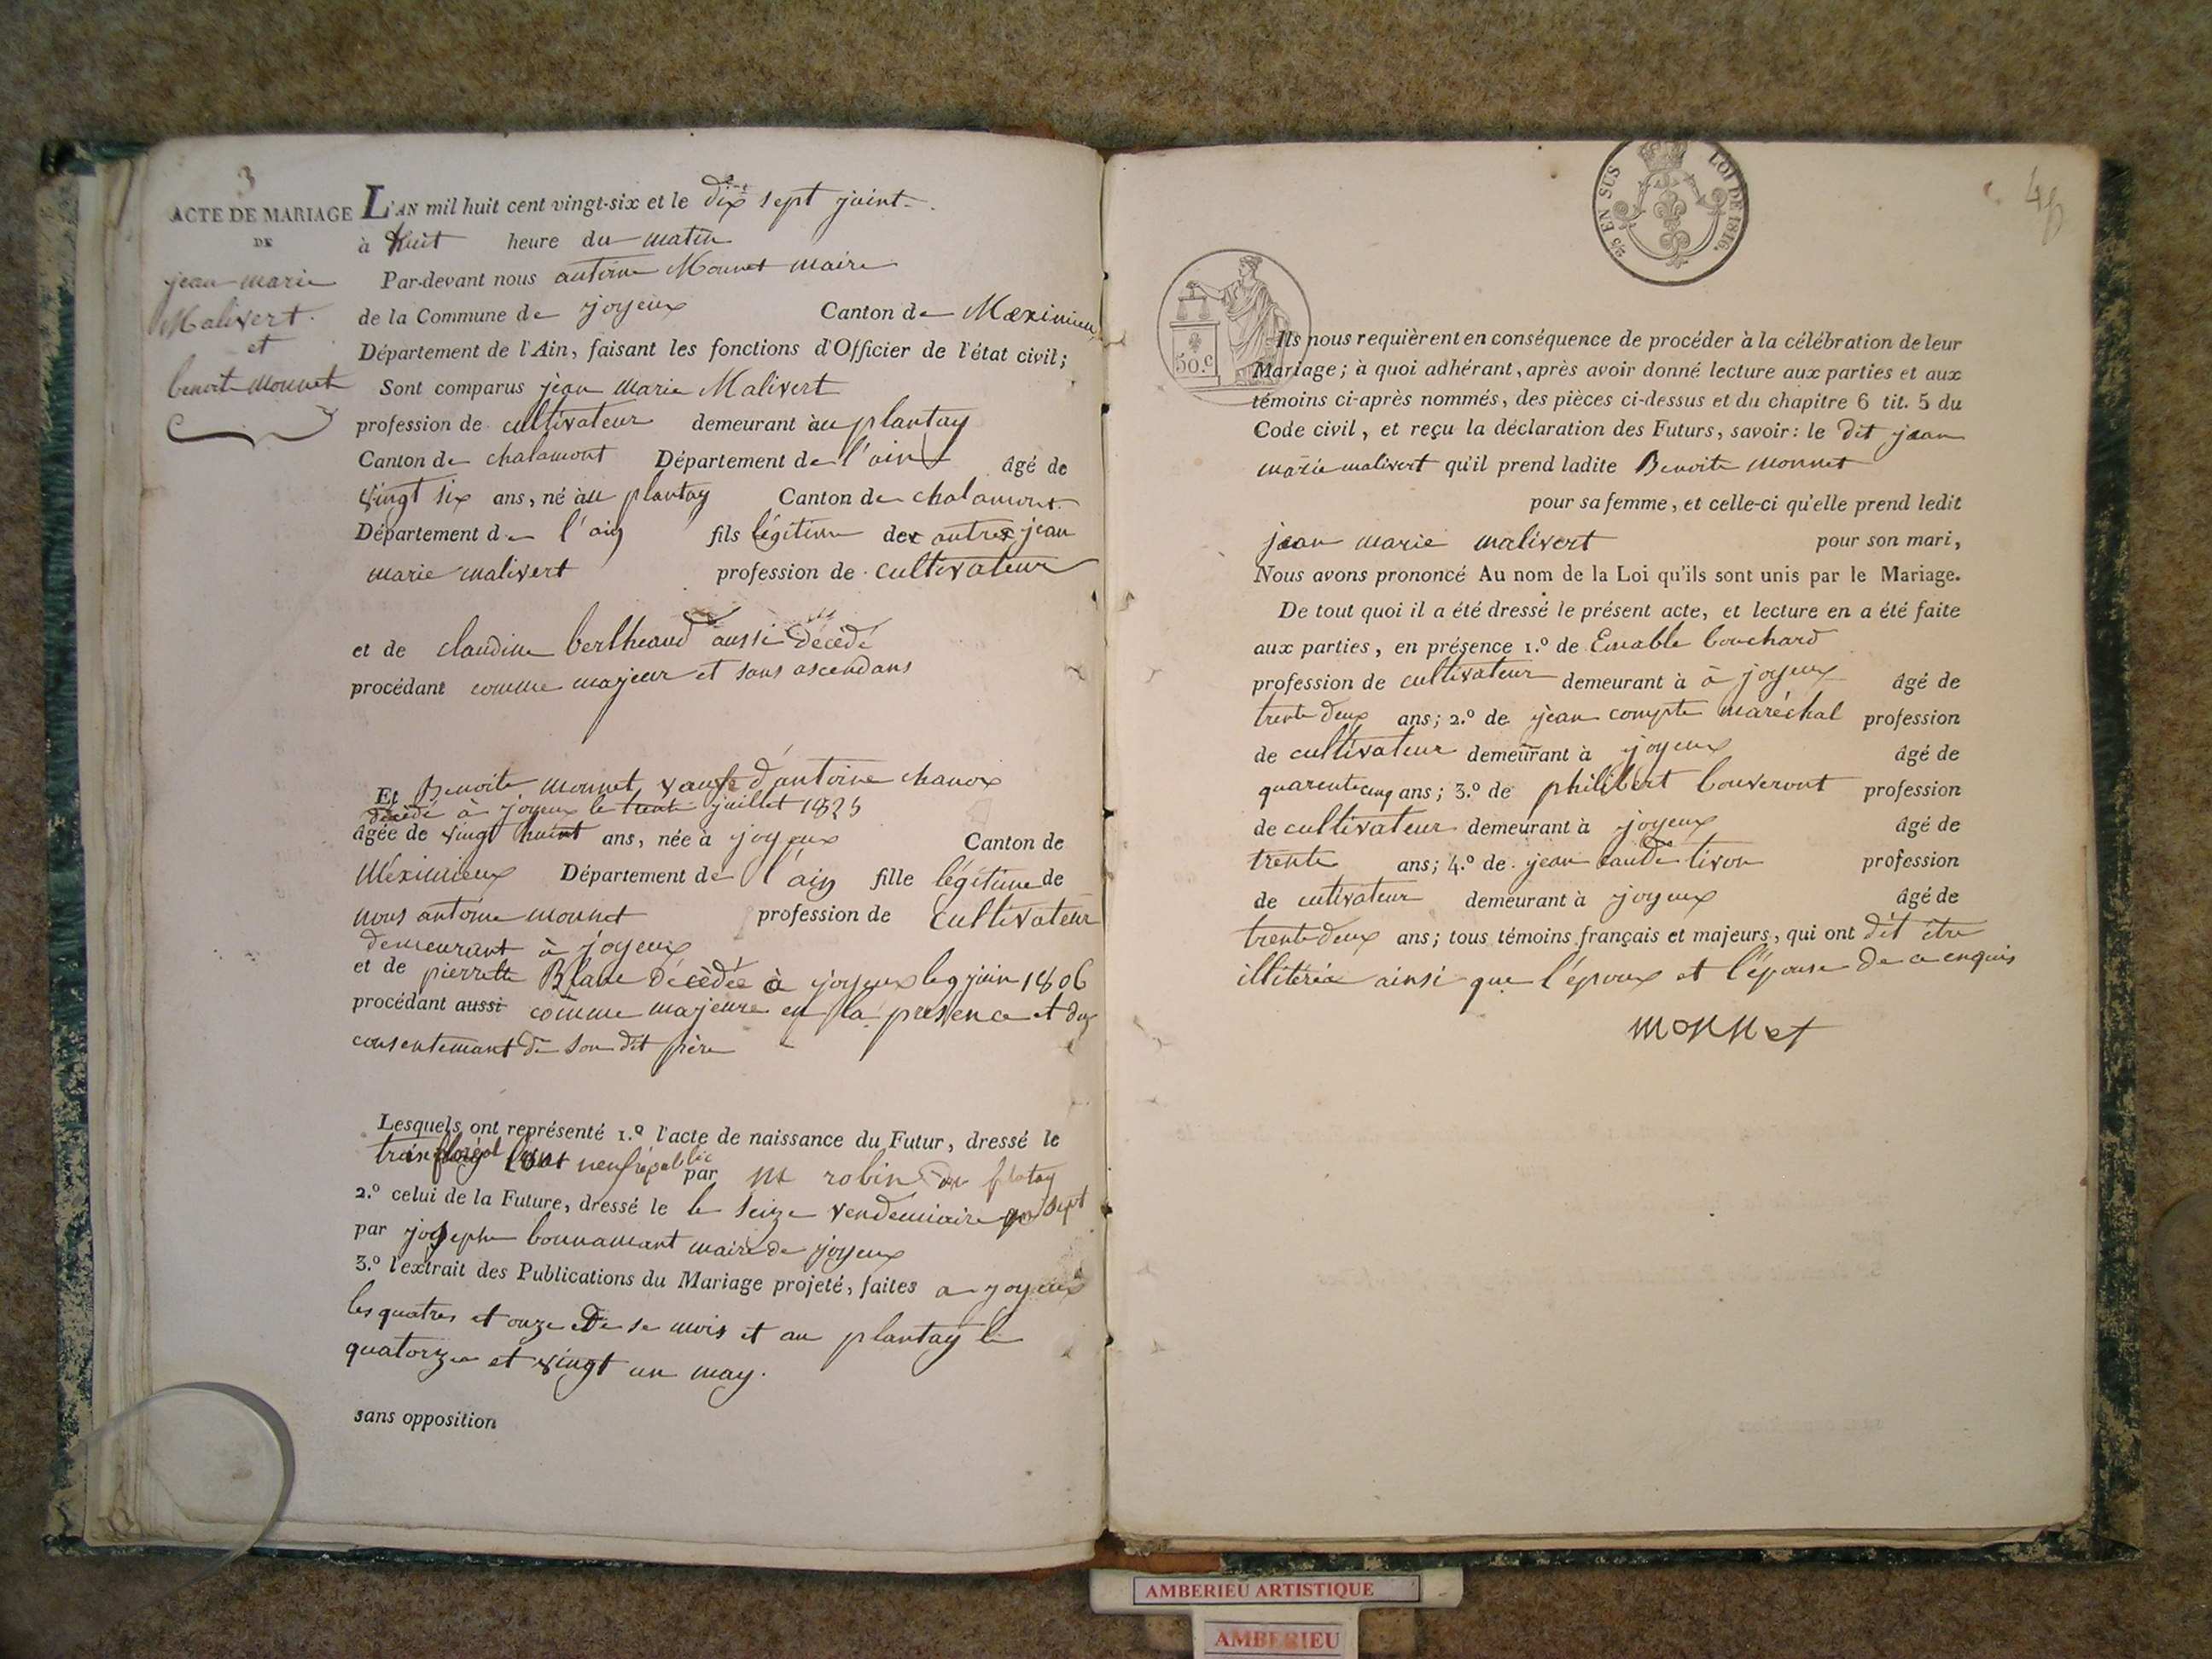 3
ACTE DE MARIAGE
DE
jean marie
Malivert
et
benoite monnet
L'AN mil huit cent vingt-six et le dix sept juint
à huit heure du matin
Par-devant nous antoine Monnet maire
de la Commune de joyeux Canton de Meximieux
Département de l'Ain, faisant les fonctions d'Officier de l'état civil;
Sont comparus jean marie Malivert
profession de cultivateur demeurant au plantay
Canton de chalamont Département de l'ain âgé de
vingt six ans, né au plantay Canton de chalamont
Département de l'ain fils légitime de jean
marie malivert profession de cultivateur
et de claudine bertheaud aussi décédé
procédant comme majeur et sans ascendans
Et Benoite monnet vauve d'antoine chanox
décédé à joyeux le juillet 1825
âgée de vingt huit ans, née à joyeux Canton de
Méximieux Département de l'ain fille légitime de
nous antoine monnet profession de cultivateur
demeurant à joyeux
et de pierrette Blanc décédée à joyeux le 9 juin 1806
procédant aussi comme majeure en la présence et du
consentemant de son dit père
Lesquels ont représenté 1.º l'acte de naissance du Futur, dressé le
trois floréal neuf républic par M robin plantay
2.º celui de la Future, dressé le le seize vendemiaire an sept
par joseph bonnamant maire de joyeux
3.º l'extrait des Publications du Mariage projeté, faites a joyeux
les quatres et onze de se mois et au plantay le
quatorze et vingt un may.
sans opposition
48
25 EN SUS
LOI DE 1816.
50.c
Ils nous requièrent en conséquence de procéder à la célébration de leur
Mariage; à quoi adhérant, après avoir donné lecture aux parties et aux
témoins ci-après nommés, des pièces ci-dessus et du chapitre 6 tit. 5 du
Code civil, et reçu la déclaration des Futurs, savoir: le dit jean
marie malivert qu'il prend ladite Benoite monnet
pour sa femme, et celle-ci qu'elle prend ledit
jean marie malivert pour son mari,
Nous avons prononcé Au nom de la Loi qu'ils sont unis par le Mariage.
De tout quoi il a été dressé le présent acte, et lecture en a été faite
aux parties, en présence 1.º de Emable bouchard
profession de cultivateur demeurant à à joyeux âgé de
trente deux ans; 2.º de jean compte maréchal profession
de cultivateur demeurant à joyeux âgé de
quarente cinq ans; 3.º de philibert bouveront profession
de cultivateur demeurant à joyeux âgé de
trente ans; 4.º de jean tivon profession
de cutivateur demeurant à joyeux âgé de
trente deux ans; tous témoins français et majeurs, qui ont dit être
illiteré ainsi que l'époux et l'épouse de ce enquis
monnet
AMBERIEU ARTISTIQUE
AMBERIEU